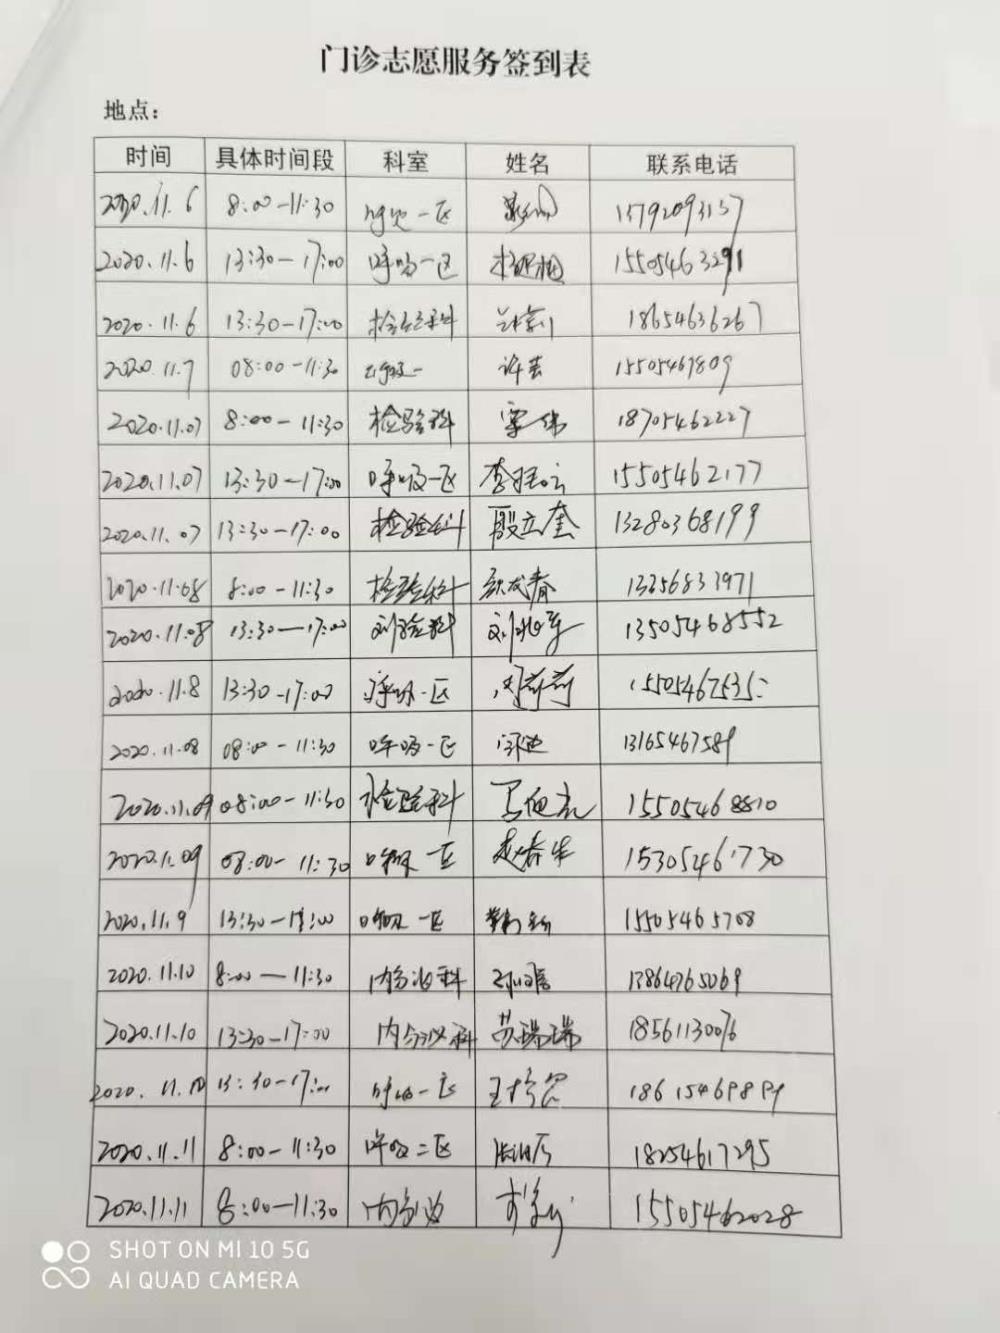 门诊志愿服务签到表
地点：
时间 具体时间段 科室 姓名 联系电话
2020.11.6 8:00-11:30 呼吸一区 13792093157
2020.11.6 13:30-17:00 呼吸一区 15505463291
2020.11.6 13:30-17:00 检验科 18654636267
2020.11.7 08:00-11:30 呼吸一 许芸 15505467809
2020.11.07 8:00-11:30 检验科 18705462227
2020.11.07 13:30-17:00 呼吸一区 15505462177
2020.11.07 13:30-17:00 检验科 殷立奎 13280368199
2020.11.08 8:00-11:30 检验科 13356833971
2020.11.08 13:30-17:00 检验科 13505468552
2020.11.8 13:30-17:00 呼吸一区 闫莉莉
2020.11.08 08:00-11:30 呼吸一区 13165467589
2020.11.09 08:00-11:30 检验科 15505468810
2020.11.09 08:00-11:30 呼吸一区 赵春生 15305461730
2020.11.9 13:30-17:00 呼吸一区 15505465708
2020.11.10 8:00-11:30 内分泌科 13864765069
2020.11.10 13:30-17:00 内分泌科 苏瑞瑞 18561130076
2020.11.10 13:30-17:00 呼吸一区 18615469899
2020.11.11 8:00-11:30 呼吸二区 18254617295
2020.11.11 8:00-11:30 内分泌 15505462028
SHOT ON MI 10 5G
AI QUAD CAMERA